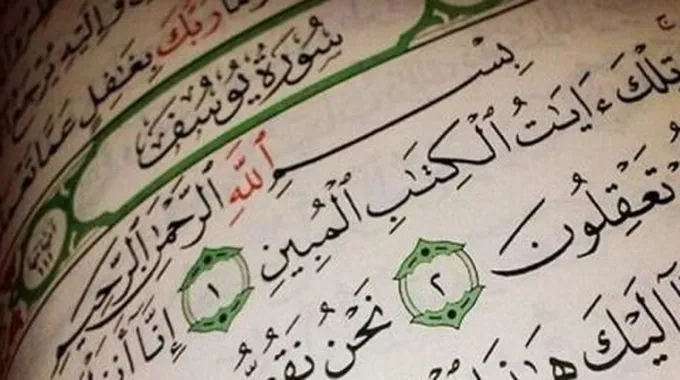 وَإِلَيْهِ يُرْجَعُ
رَبُّكَ بِغَٰفِلٍ عَمَّا
سُورَةُ يُوسُفَ
بِسْمِ ٱللَّهِ ٱلرَّحْمَٰنِ ٱلرَّحِيمِ
تِلْكَ ءَايَٰتُ ٱلْكِتَٰبِ ٱلْمُبِينِ ١ إِنَّآ
تَعْقِلُونَ ٢ نَحْنُ نَقُصُّ
إِلَيْكَ هَٰذَا